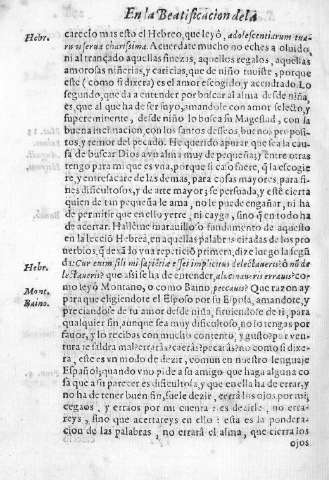 En la Beatificacion de la
Hebr.
careciò mas esto el Hebreo, que leyò, adolescentiarum tua-
rum serua charissima. Acuerdate mucho no eches a oluido,
ni al trançado aquellas finezas, aquellos regalos, aquellas
amorosas niñerias, y caricias, que de niño tuuiste, porque
este (como si dixera) es el amor escogido, y acendrado. Lo
segundo, que da a entender por buscar al alma desde niña,
es, que al que ha de ser suyo, amandole con amor selecto, y
supereminente, desde niño lo busca su Magestad, con la
buena inclinacion, con los santos desseos buenos proposi-
tos, y temor del pecado. He querido apurar que sea la cau-
sa de buscar Dios a vn alma muy de pequeña; y entre otras
tengo para mi que es vna, porque si caso fuere, q̃ la escogie
re, y entresacare de las demas, para cosas mayores, para fi-
nes dificultosos, y de arte mayor; se persuada, y estè cierta
quien de tan pequeña le ama, no le puede engañar, ni ha
de permitir que en ello yerre, ni cayga, sino q̃ en todo ha
de acertar. Hallème marauilloso fundamento de aquesto
en la lecciõ Hebrea, en aquellas palabras citadas de los pro
uerbios, q̃ dexâ lo vna repeticiõ primero, dize luego la segũ
Hebr.
de Haueris? que assi se ha de entender,
Mont.
Baino.
como leyò Montano, o como Baino peccauis? Que razon ay
para que eligiendote el Esposo por su Esposa, amandote, y
preciandose de tu amor desde niña, siruiendose de ti, para
qualquier fin, aunque sea muy dificultoso, no lo tengas por
fauor, y lo recibas con mucho contento, y gusto? por ven-
tura te saldra mal? erraràs? caeràs? pecaràs? no como si dixe-
ra, este es vn modo de dezir, comun en nuestro lenguaje
Español; quando vno pide a su amigo que haga alguna co
sa que a su parecer es dificultosa, y que en ella ha de errar, y
no ha de tener buen fin, suele dezir, cerrà los ojos por mi,
cegaos, y erraos por mi cuenta: es dezirle, no erra-
reys, sino que acertareys en ello: esta es la pondera-
cion de las palabras, no errarà el alma, que cierra los
ojos